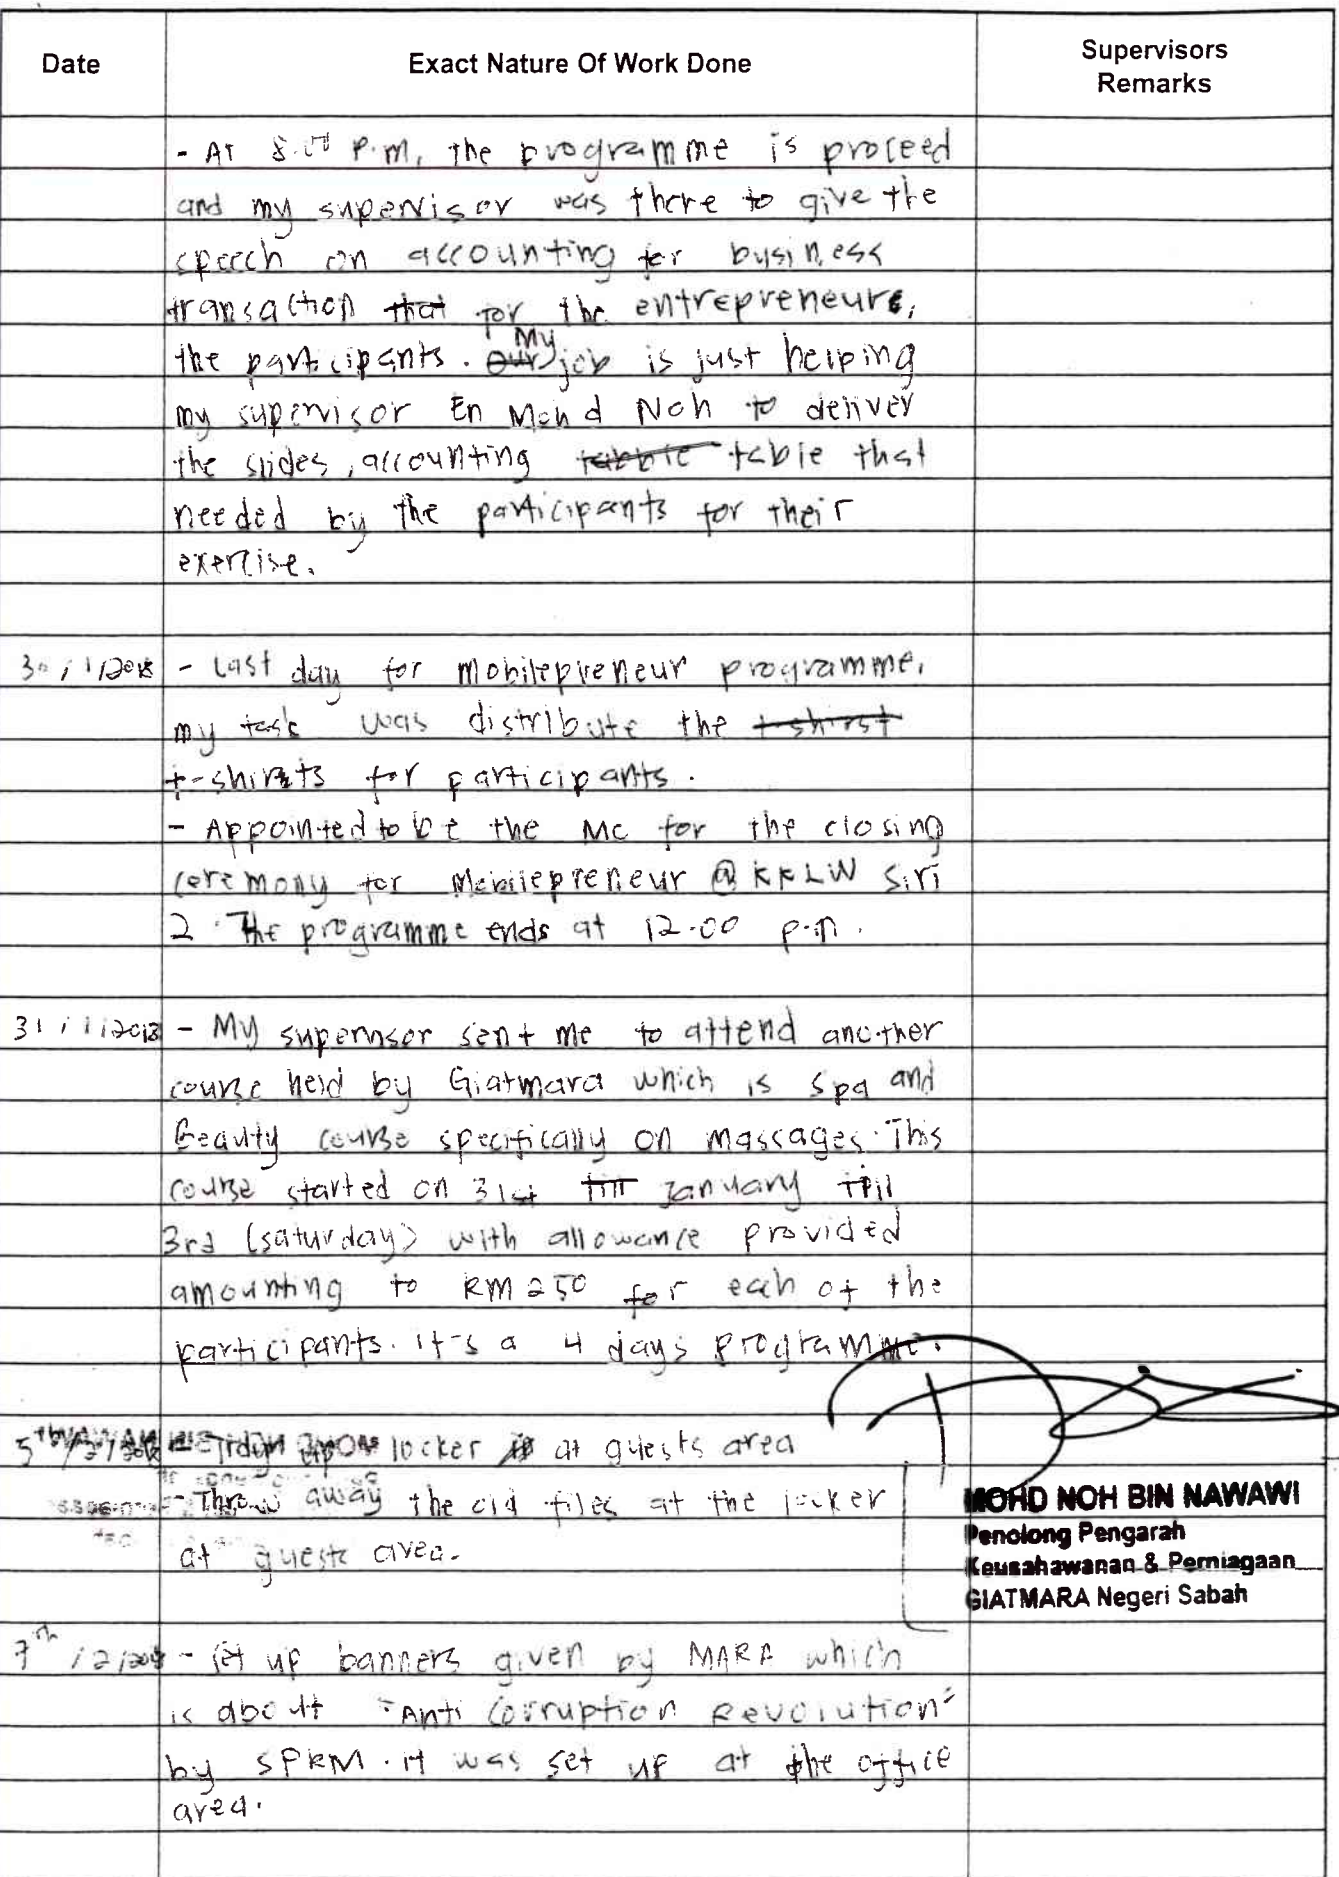 Date Exact Nature Of Work Done Supervisors Remarks
- At 8.00 P.m, the programme is proceed
and my supervisor was there to give the
speech on accounting for business
transaction that for the entrepreneurs,
the participants. Our My job is just helping
my supervisor En Mohd Noh to deliver
the slides, accounting tabble table that
needed by the participants for their
exercise.
30/1/2018 - Last day for mobilepreneur programme.
my task was distribute the t-shirst
t-shirts for participants.
- Appointed to be the Mc for the closing
ceremony for Mobilepreneur @ KKLW Siri
2. The programme ends at 12.00 p.m.
31/1/2018 - My supervisor sent me to attend another
course held by Giatmara which is Spa and
Beauty course specifically on massages. This
course started on 31st till January till
3rd (saturday) with allowance provided
amounting to RM 250 for each of the
participants. It's a 4 days programme.
5th/2/2018 locker at guests area
- Throw away the old files at the locker
at guests area.
MOHD NOH BIN NAWAWI
Penolong Pengarah
Keusahawanan & Perniagaan
GIATMARA Negeri Sabah
7th/2/2018 - Set up banners given by MARA which
is about "Anti Corruption Revolution"
by SPRM. It was set up at the office
area.